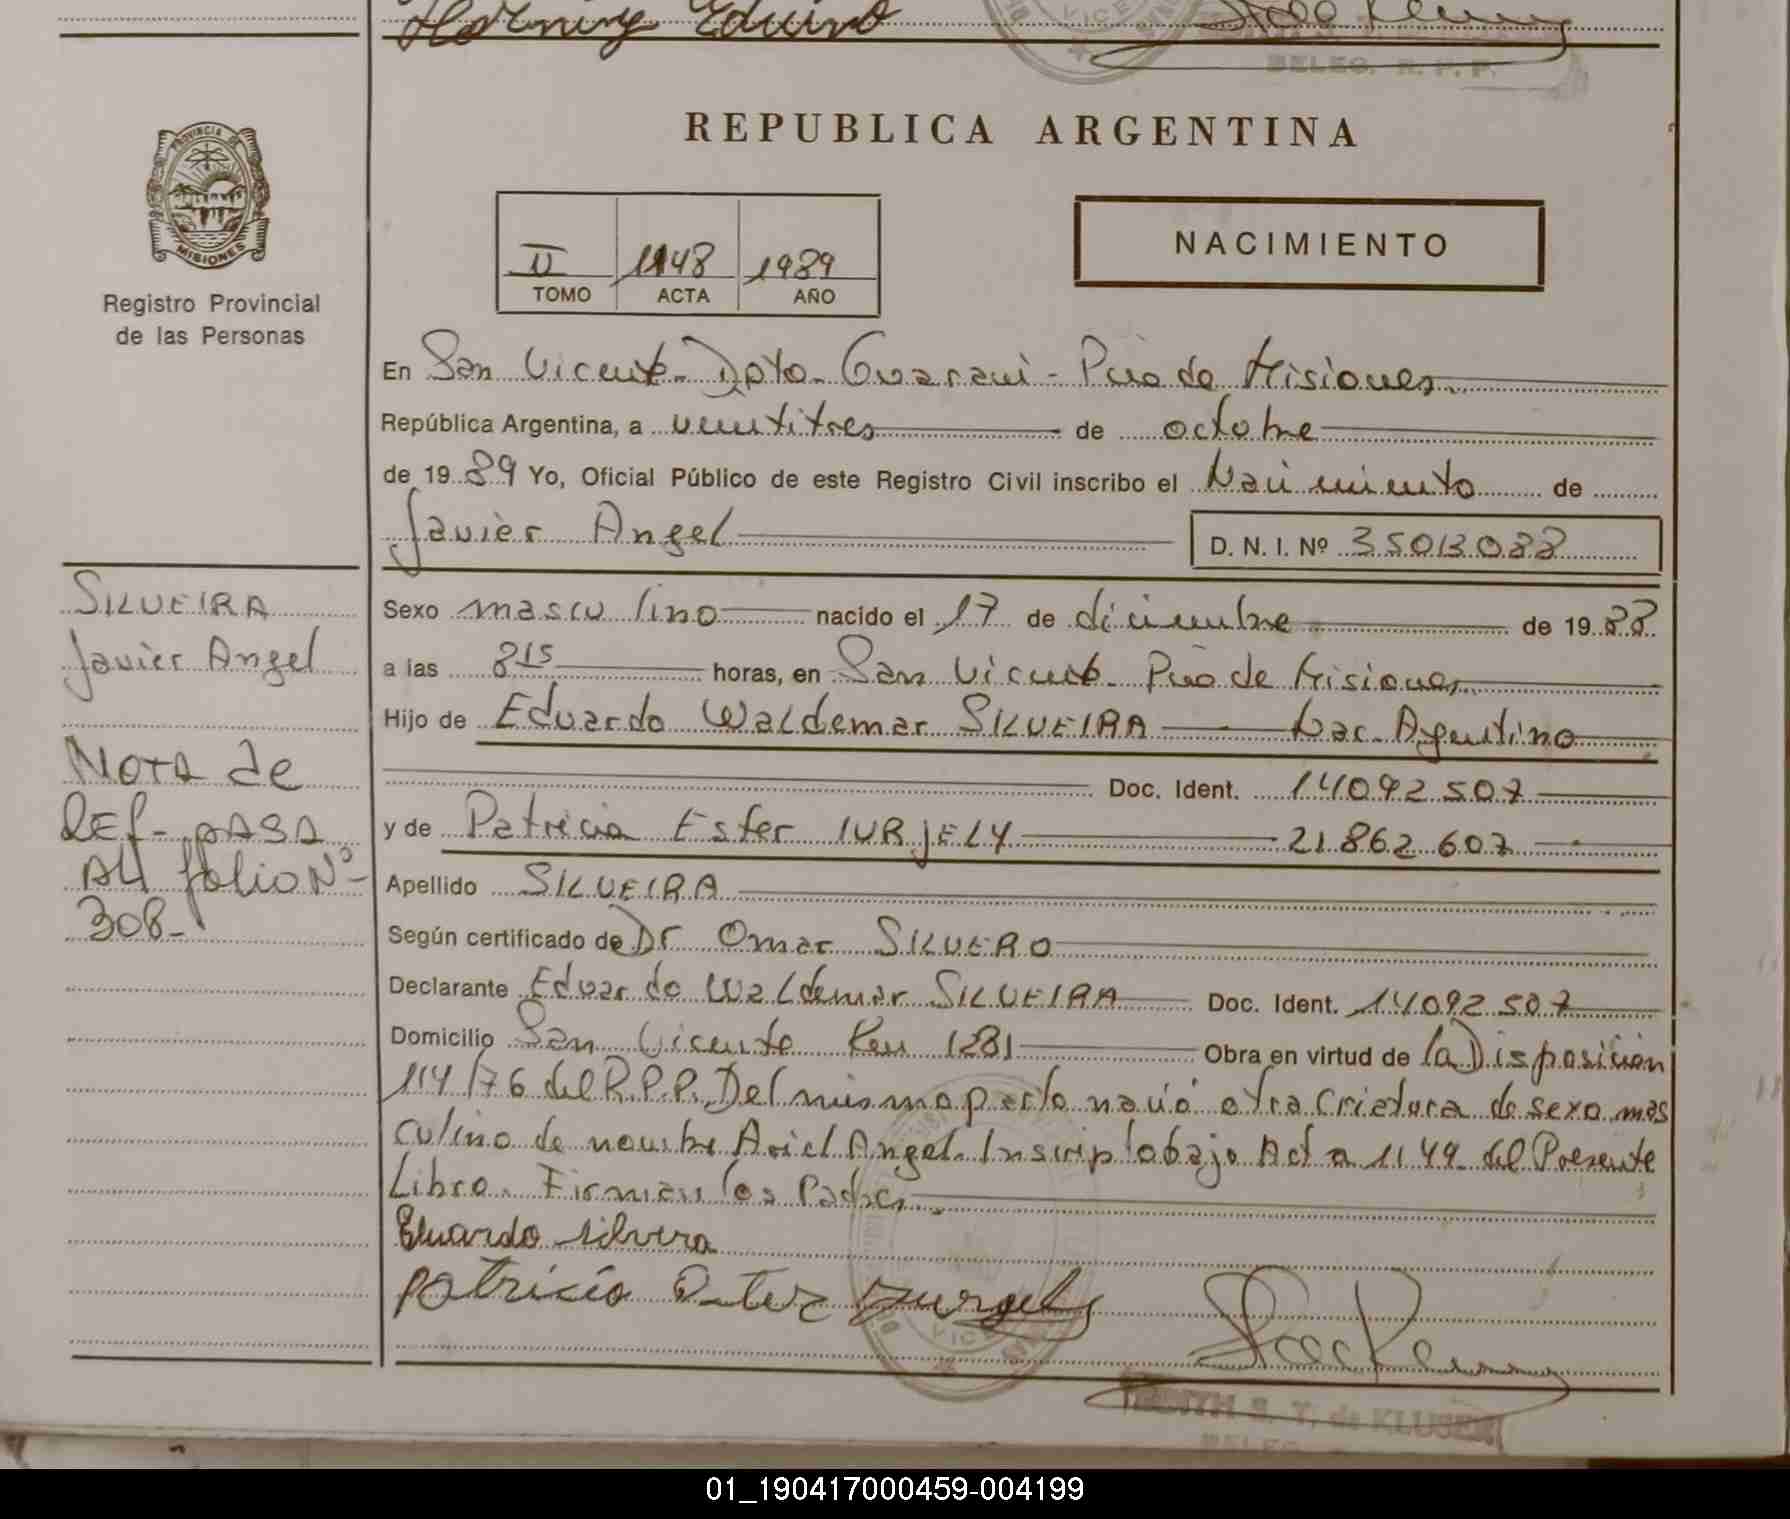 Horning Eduino
VICE
BELEG. R. P. P.
REPUBLICA ARGENTINA
PROVINCIA DE
MISIONES
Registro Provincial
de las Personas
II 1148 1989
TOMO ACTA AÑO
NACIMIENTO
En San Vicente - Dpto - Guarani - Pcia de Misiones
República Argentina, a veintitres de octubre
de 1989 Yo, Oficial Público de este Registro Civil inscribo el Nacimiento de
Javier Angel D. N. I. Nº 35013088
SILVEIRA
Javier Angel
Nota de
REF- PASA
AL folio Nº
308-
Sexo masculino nacido el 17 de diciembre de 1988
a las 8 15 horas, en San Vicente - Pcia de Misiones
Hijo de Eduardo Waldemar SILVEIRA Nac. Argentino
Doc. Ident. 14092507
y de Patricia Ester IURJELY 21.862.607
Apellido SILVEIRA
Según certificado de Dr Omar SILVERO
Declarante Eduardo Waldemar SILVEIRA Doc. Ident. 14092507
Domicilio San Vicente Km 1281 Obra en virtud de la Disposición
114/76 del R.P.P. Del mismo parto nació otra criatura de sexo mas
culino de nombre Ariel Angel. Inscripto bajo Acta 1149 del Presente
Libro. Firman los Padres
Eduardo Silvera
Patricia Ester Iurgely
VICE
S. T. de KLUSEN
BELEG.
01_190417000459-004199